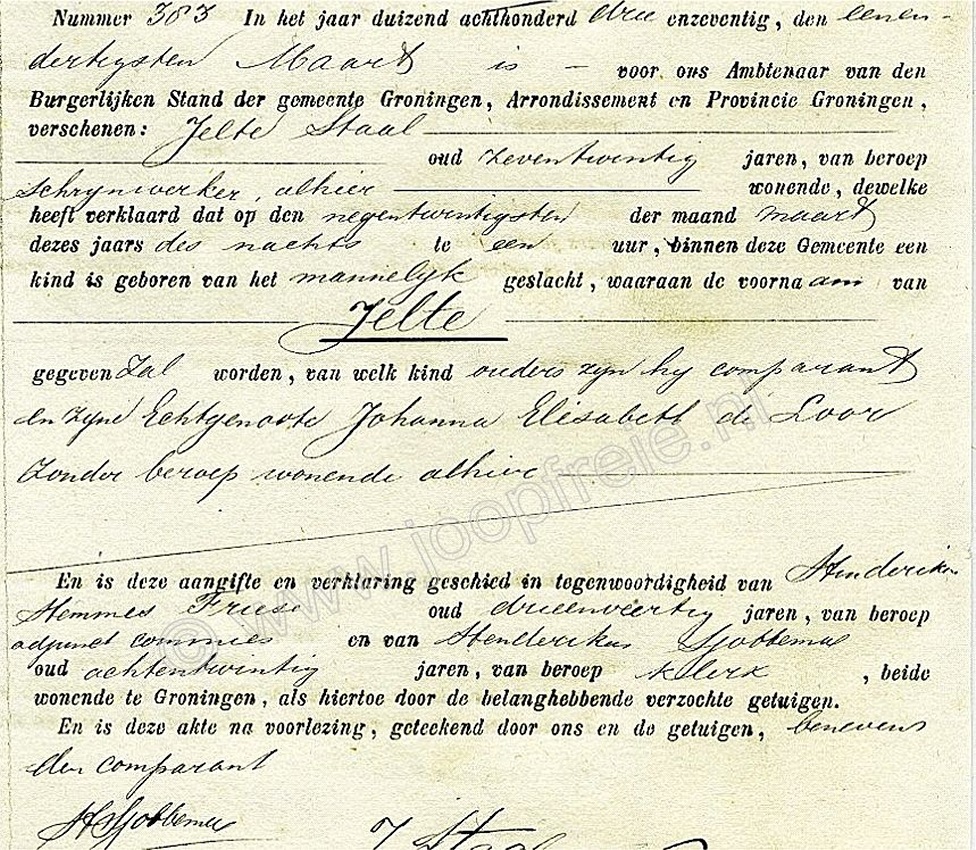 Nummer 383 In het jaar duizend achthonderd drie enzeventig, den eenen-
dertigsten Maart is - voor ons Ambtenaar van den
Burgerlijken Stand der gemeente Groningen, Arrondissement en Provincie Groningen,
verschenen: Jelte Staal
oud zeventwintig jaren, van beroep
schrijnwerker, alhier wonende, dewelke
heeft verklaard dat op den negentwintigsten der maand maart
dezes jaars des nachts te een uur, binnen deze Gemeente een
kind is geboren van het mannelijk geslacht, waaraan de voornaam van
Jelte
gegeven zal worden, van welk kind ouders zijn hij comparant
en zijne Echtgenoote Johanna Elisabeth de Loor
zonder beroep wonende alhier
© www.joopfreie.nl
En is deze aangifte en verklaring geschied in tegenwoordigheid van Henderikus
Hemmes Friese oud drieenveertig jaren, van beroep
adjunct commies en van Henderikus Sjobbema
oud achtentwintig jaren, van beroep klerk, beide
wonende te Groningen, als hiertoe door de belanghebbende verzochte getuigen.
En is deze akte na voorlezing, geteekend door ons en de getuigen, benevens
den comparant
HSjobbema
J Staal